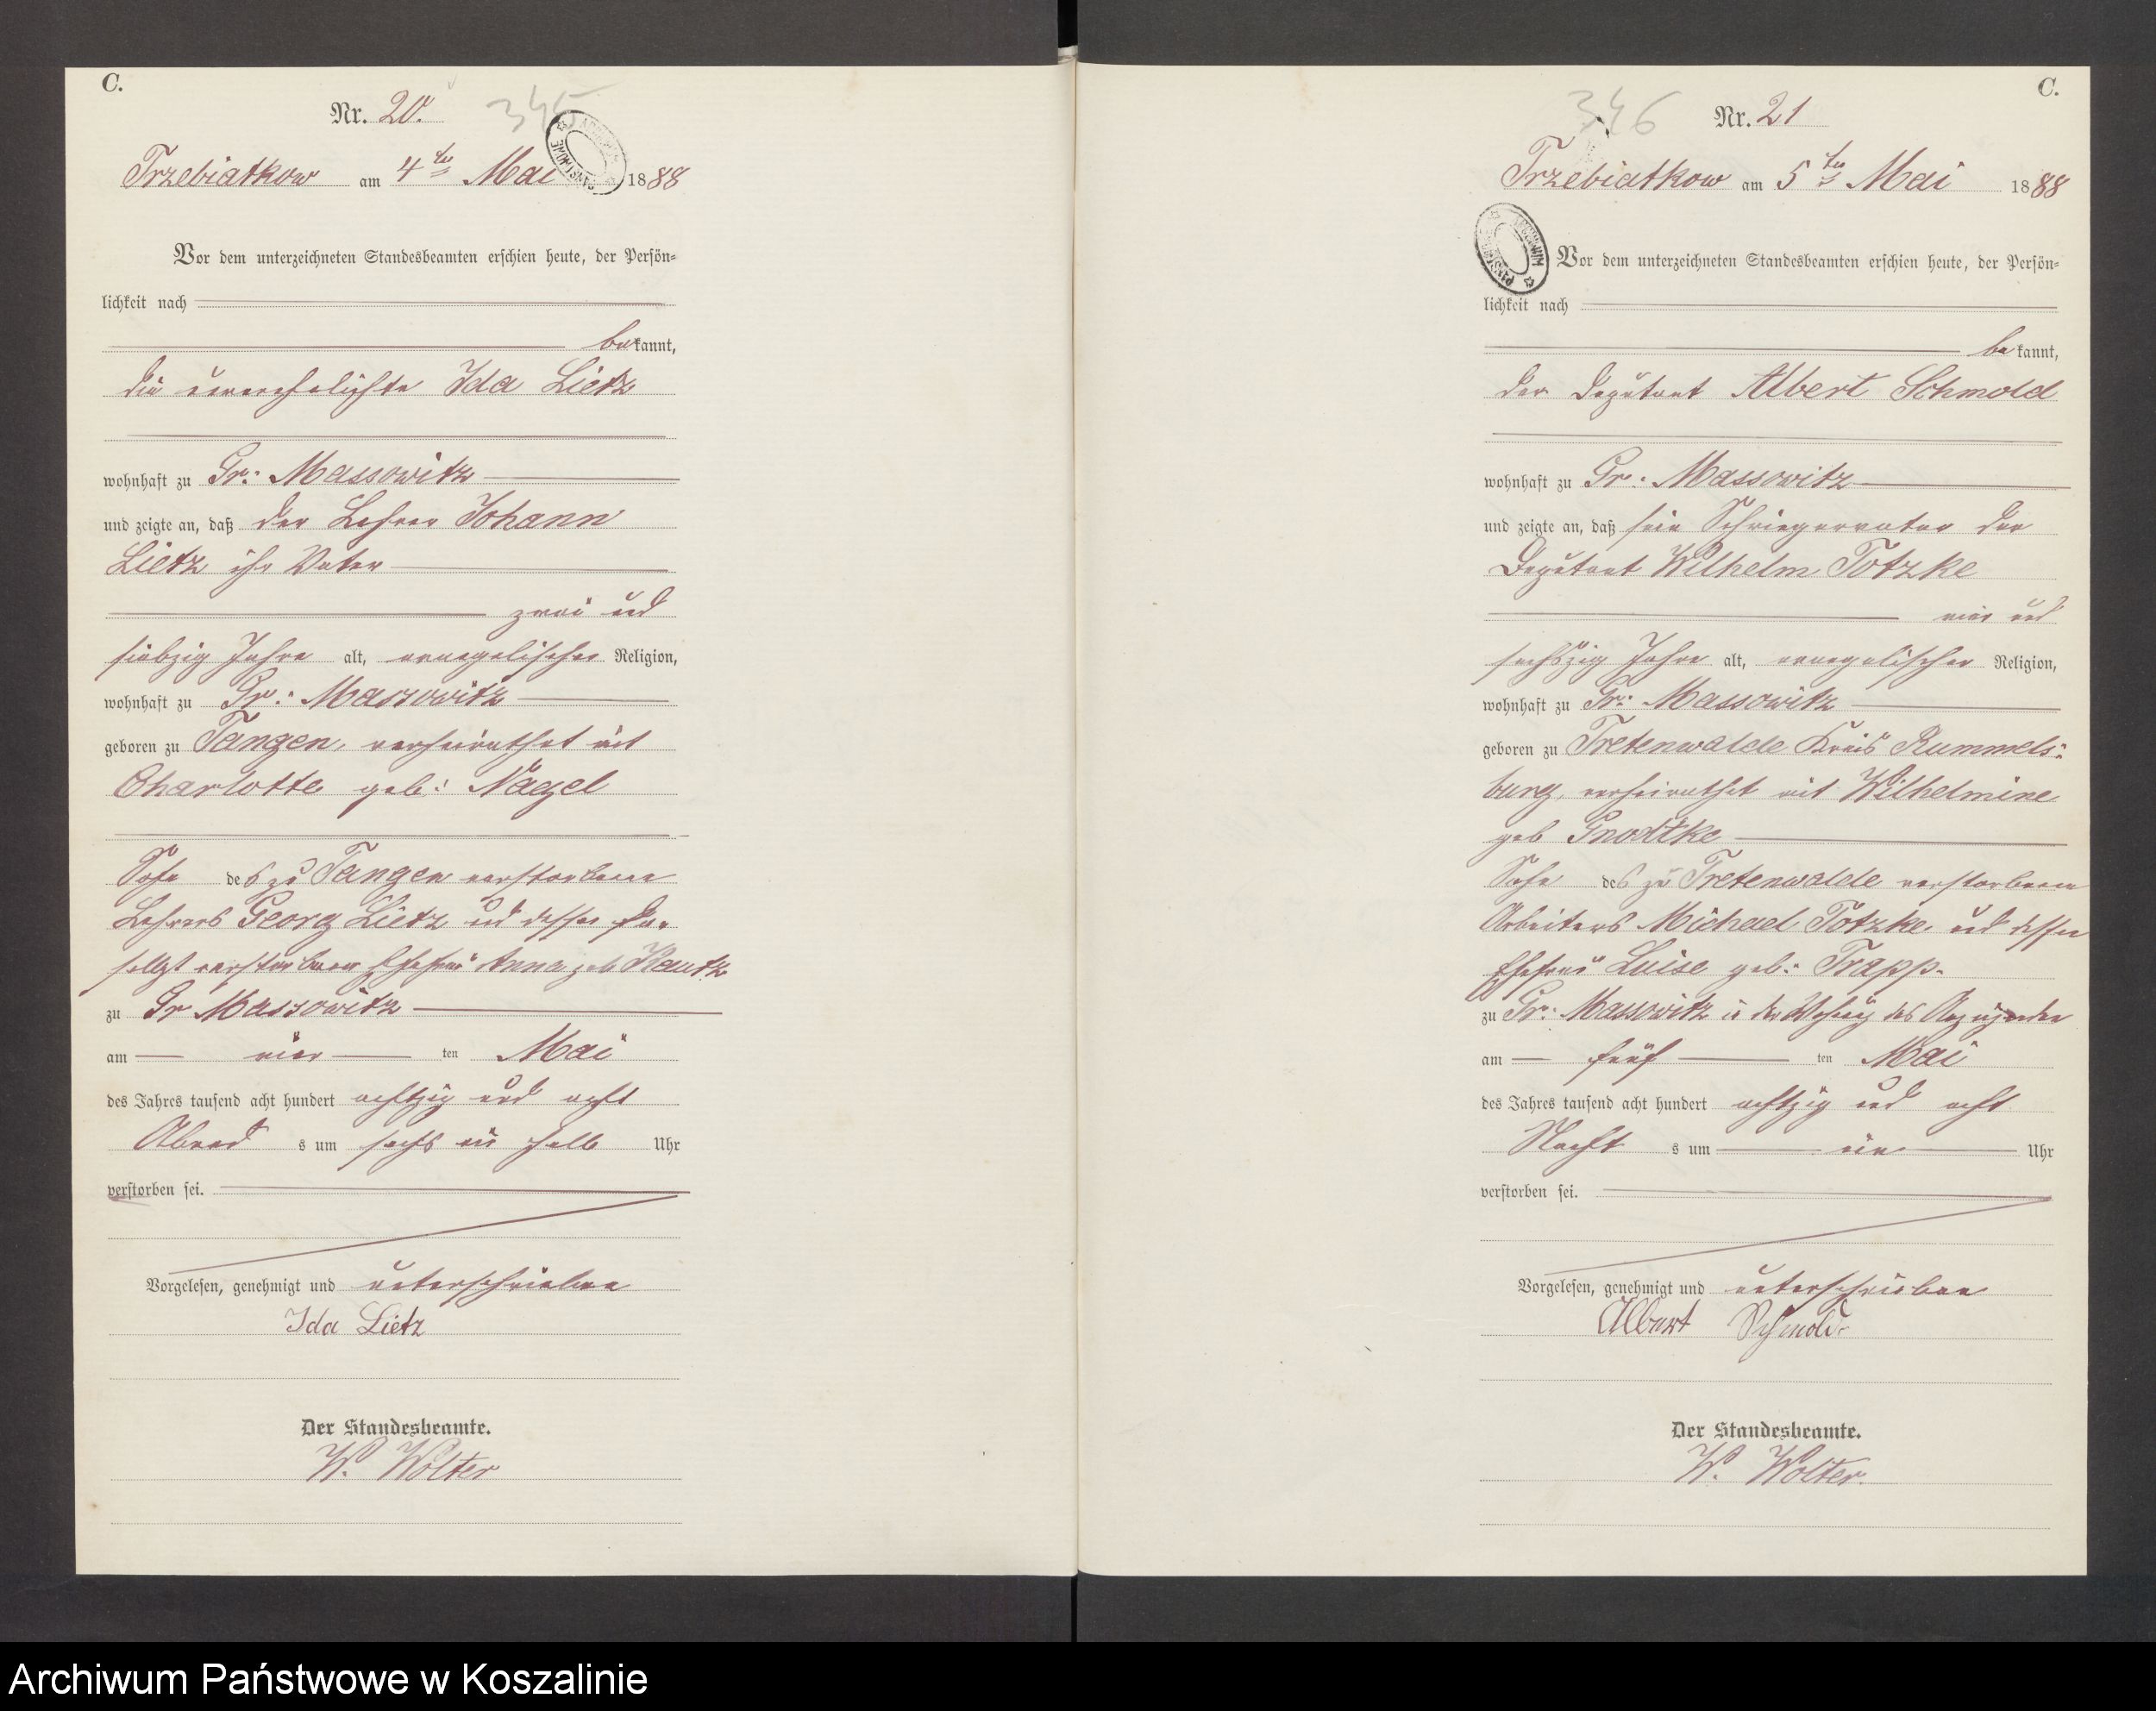 C.
Nr. 20.
345
Trzebiatkow am 4ten Mai 1888
Vor dem unterzeichneten Standesbeamten erschien heute, der Persön-
lichkeit nach
bekannt,
die unverehelichte Ida Lietz
wohnhaft zu Gr: Massowitz
und zeigte an, daß der Lehrer Johann
Lietz ihr Vater
zwei und
siebzig Jahre alt, evangelischer Religion,
wohnhaft zu Gr: Massowitz
geboren zu Tangen, verheirathet mit
Charlotte geb: Nagel
Sohn des zu Tangen verstorbenen
Lehrers Georg Lietz und dessen da-
selbst verstorbenen Ehefrau Anna geb
zu Gr Massowitz
am vier ten Mai
des Jahres tausend acht hundert achtzig und acht
Abends um sechs ein halb Uhr
verstorben sei.
Vorgelesen, genehmigt und unterschrieben
Ida Lietz
Der Standesbeamte.
W. Wolter
C.
346
Nr. 21
Trzebiatkow am 5ten Mai 1888
Vor dem unterzeichneten Standesbeamten erschien heute, der Persön-
lichkeit nach
bekannt,
der Deputant Albert Schmold
wohnhaft zu Gr: Massowitz
und zeigte an, daß sein Schwiegervater der
Deputant Wilhelm Totzke
vier und
sechszig Jahre alt, evangelischer Religion,
wohnhaft zu Gr: Massowitz
geboren zu Tretenwalde Kreis Rummels-
burg, verheirathet mit Wilhelmine
geb
Sohn des zu Tretenwalde verstorbenen
Arbeiters Michael Totzke und dessen
Ehefrau Luise geb: Trapp.
zu Gr: Massowitz in der Wohnung des Anzeigenden
am fünf ten Mai
des Jahres tausend acht hundert achtzig und acht
Nachts um ein Uhr
verstorben sei.
Vorgelesen, genehmigt und unterschrieben
Albert Schmold
Der Standesbeamte.
W. Wolter.
Archiwum Państwowe w Koszalinie